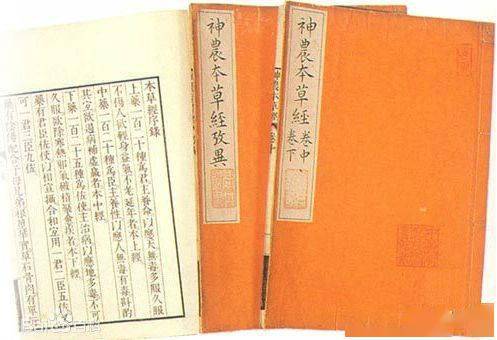 本草經序錄
上藥一百二十種爲君主養命以應天無毒多服久服
不傷人欲輕身益氣不老延年者本上經
中藥一百二十種爲臣主養性以應人無毒有毒斟
其宜欲遏病補虛羸者本中經
下藥一百二十五種爲佐使主治病以應地多毒不可
久服欲除寒熱邪氣破積聚愈疾者本下經
藥有君臣佐使以相宣攝合和宜用一君二臣五佐
可一君三臣九佐
神農本草經攷異
神農本草經卷中
卷下